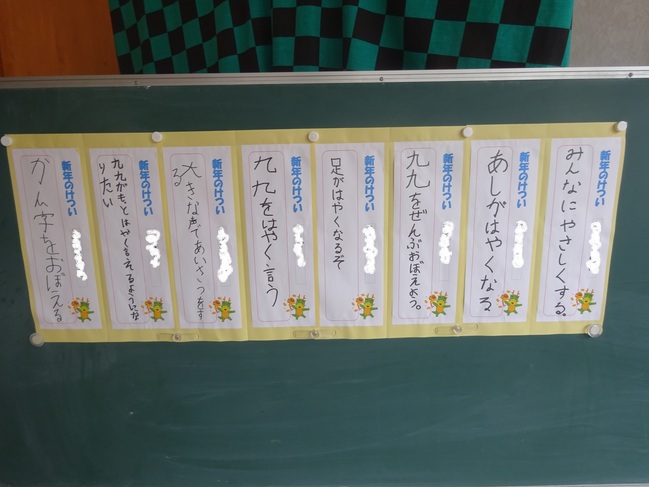 新年のけつい
みんなにやさしくする。
新年のけつい
あしがはやくなる
新年のけつい
九九をぜんぶおぼえよう。
新年のけつい
足がはやくなるぞ
新年のけつい
九九をはやく言う
新年のけつい
大きな声であいさつをす
る
新年のけつい
九九がもっとはやく言えるようにな
りたい
新年のけつい
かん字をおぼえる